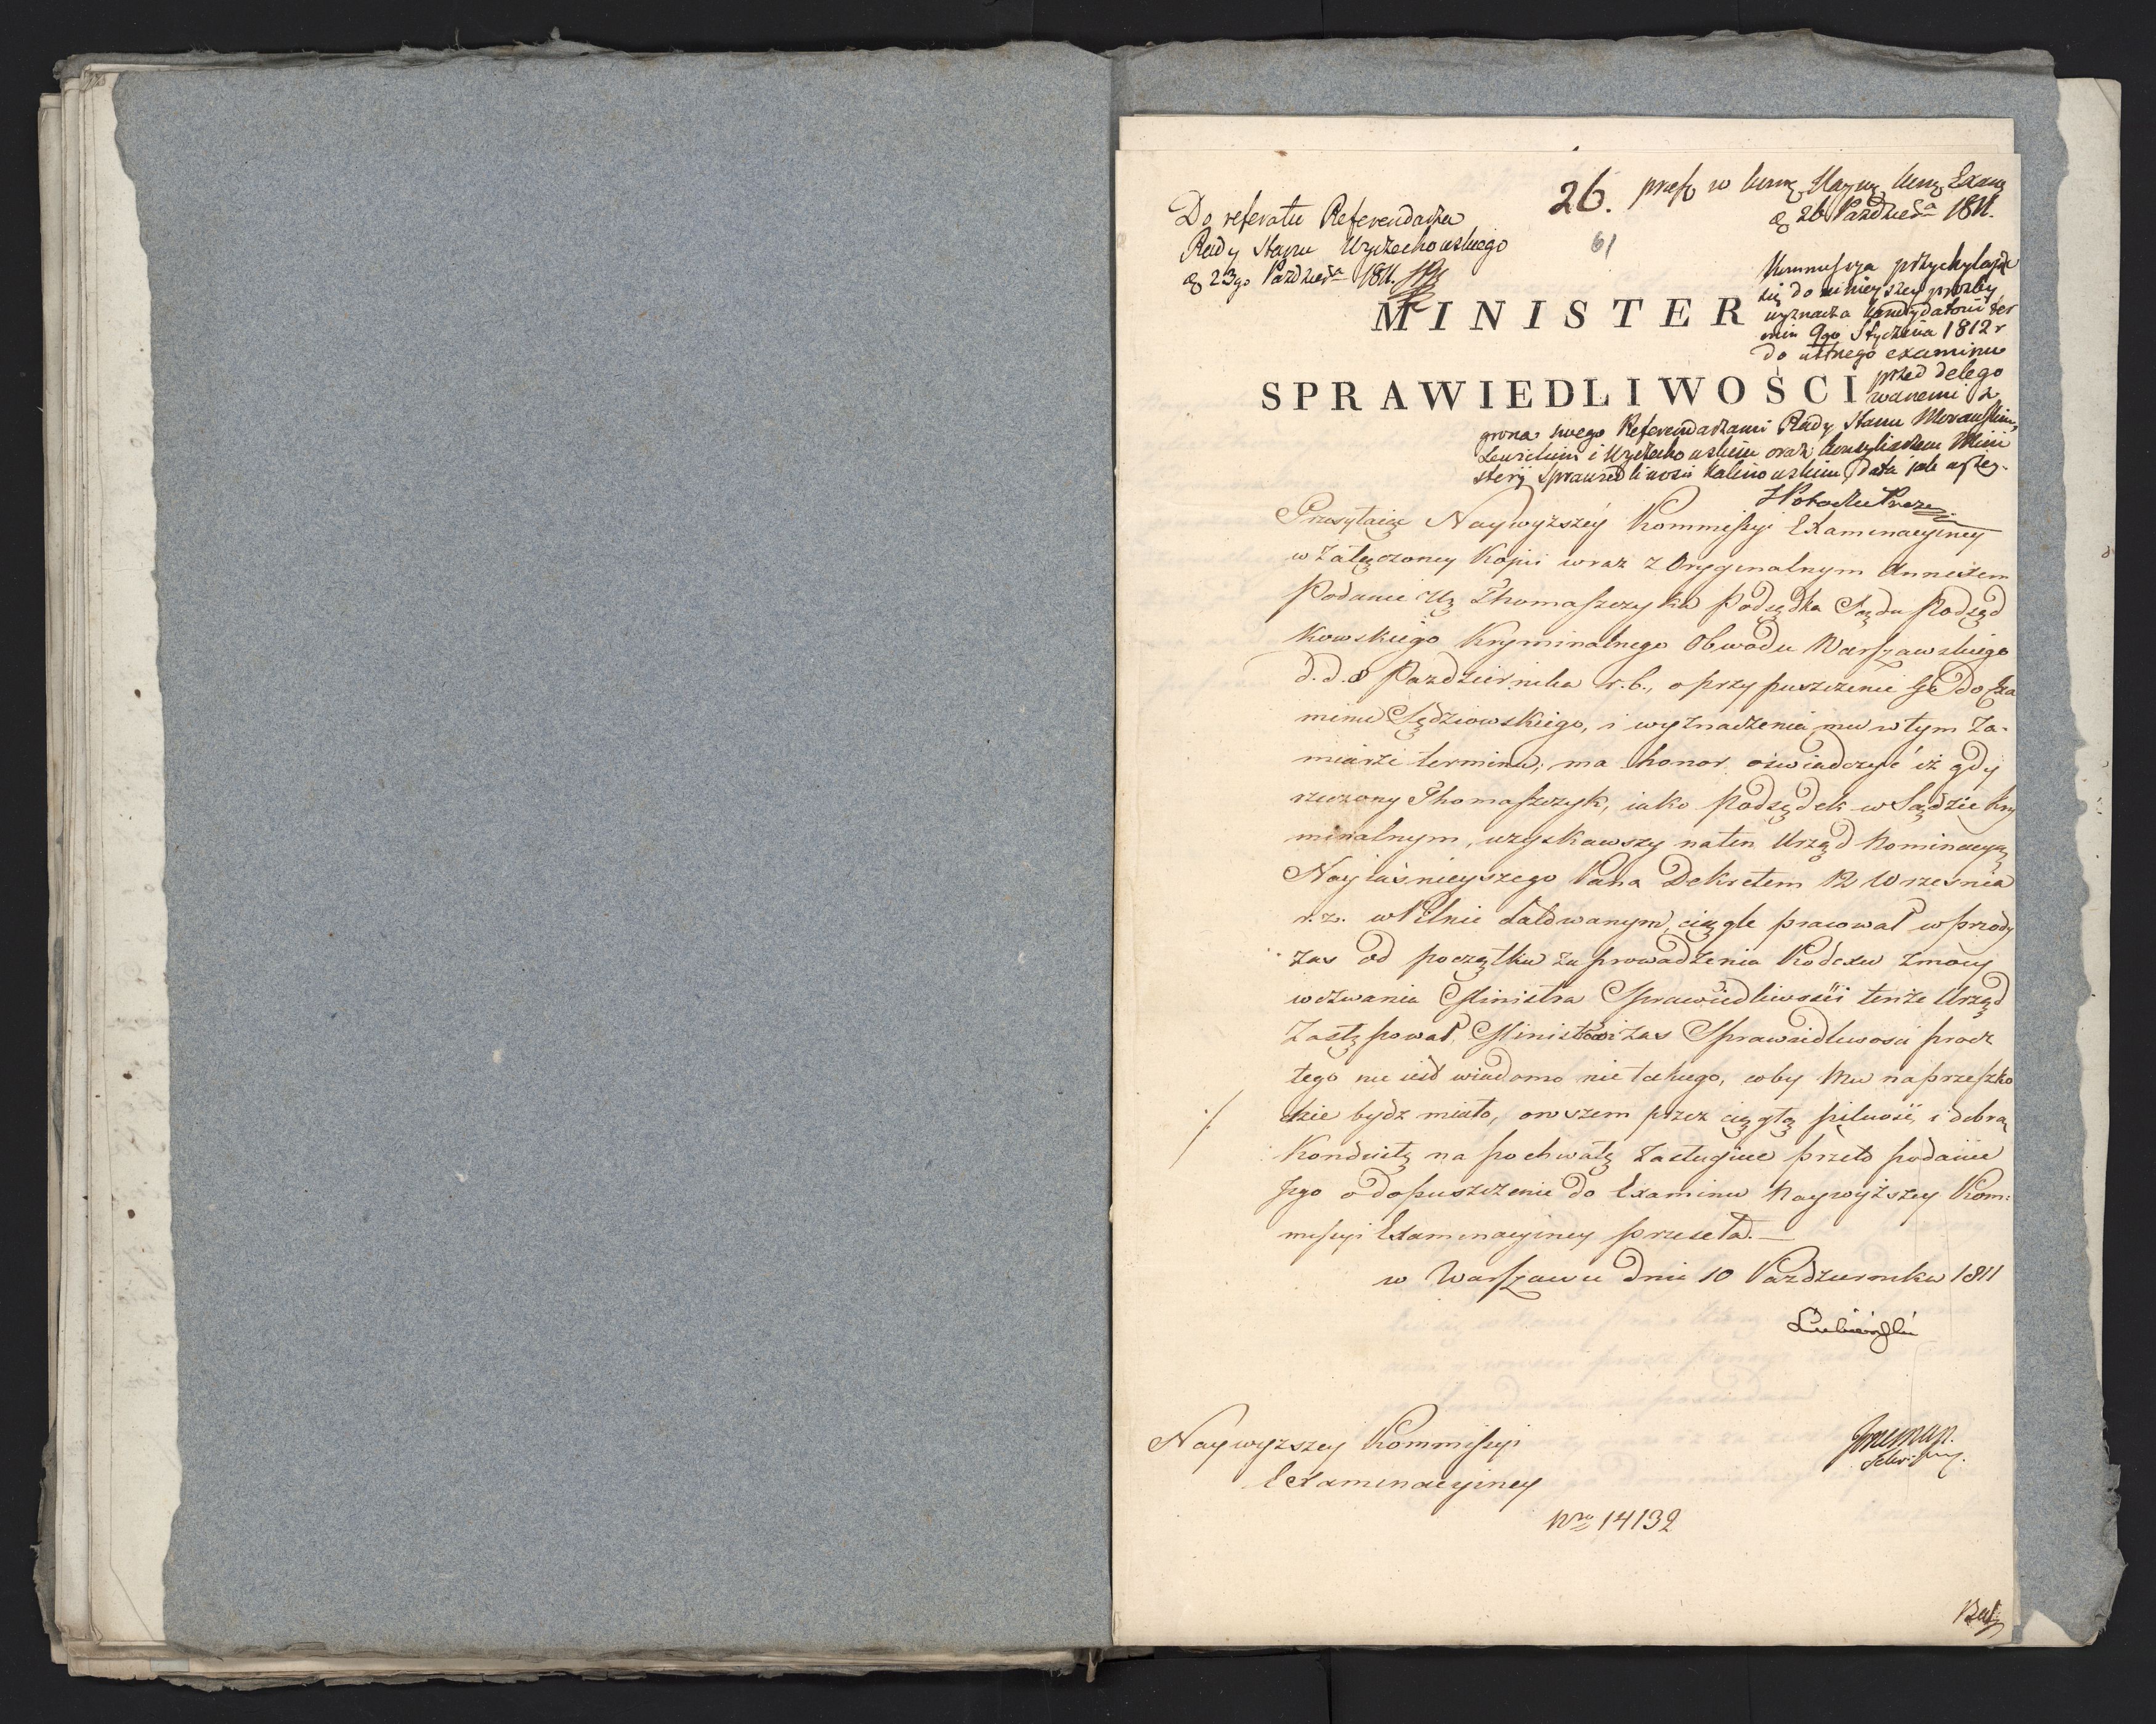 26.
Do referatu Referendarza
Rady Stanu Wyczechowskiego
23go Paździer. 1811.
61
26 Paździer. 1811.
Kommissya przychylając
się do ninieyszey prozby
wyznacza kandydatowi ter
min 9go Stycznia 1812 r
do ustnego examinu
przed delego
wanemi z
grona swego Referendarzami Rady Stanu Morawskim,
Lewickim i Wyczechowskim oraz Mini
steryi Sprawiedliwości Kalinowskim, Data jak wyżey.
MINISTER
SPRAWIEDLIWOŚCI
Przesyłaiąc Naywyższéy Kommissyi Examinacyiney
w załączoney Kopii wraz z Oryginalnym Annexem
Podanie Ur. Thomaszczyka Podsędka Sądu Podsęd
kowskiego Kryminalnego Obwodu Warszawskiego
d. d. 8 Pazdziernika r. b., o przypuszczenie Go do Exa
minu Sędziowskiego, i wyznaczenia mu w tym za-
miarze terminu; ma honor oświadczyć iż gdy
rzeczony Thomaszczyk, iako Podsędek w Sądzie Kry
minalnym, uzyskawszy na ten Urząd Nominacyą
Nayiaśnieyszego Pana Dekretem 12 Wrzesnia
r. z. w Pilnie datowanym, ciągle pracował wprzódy
zas od początku zaprowadzenia Kodexu z mocy
wezwania Ministra Sprawiedliwości tenże Urząd
zastępował, Ministrowi zas Sprawiedliwosci procz
tego nie iest wiadomo nic takiego, coby Mu na przeszko
dzie bydz miało, owszem przez ciągłą pilność i dobrą
Konduitę na pochwałę zasługuie przeto podanie
Jego o dopuszczenie do Examinu Naywyższey Kom:
missyi Examinacyiney przeseła. —
w Warszawie dnia 10 Pazdziernika 1811
Łubieński
Naywyzszey Kommissyi
Examinacyiney
Nro 14132